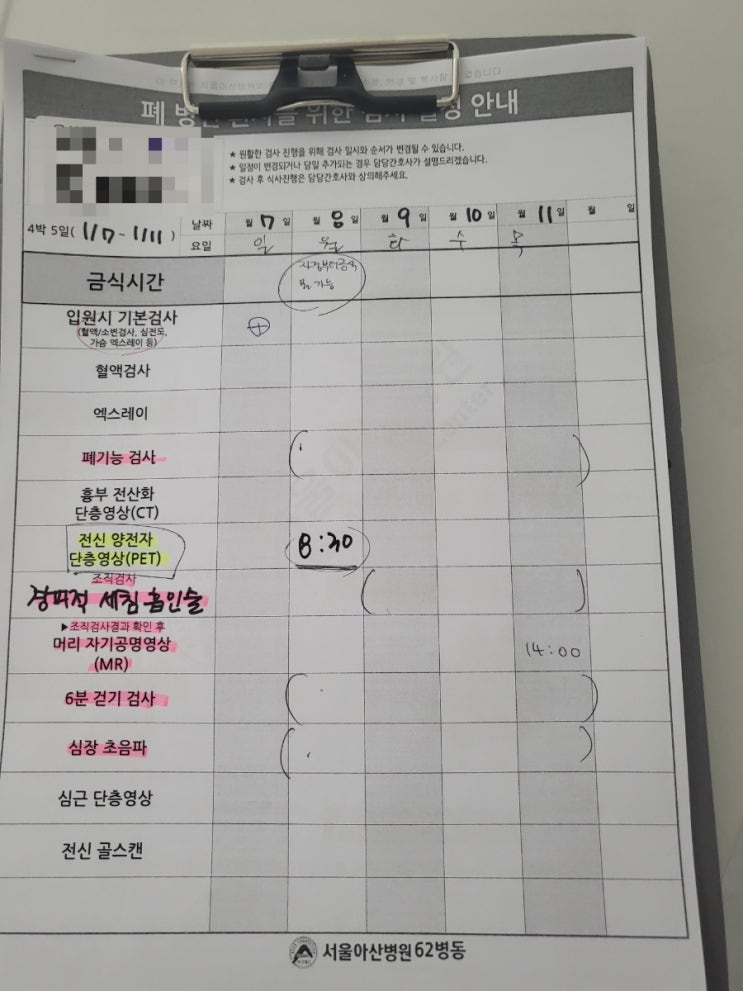 폐 병
안내
★ 원활한 검사 진행을 위해 검사 일시와 순서가 변경될 수 있습니다.
★ 일정이 변경되거나 당일 추가되는 경우 담당간호사가 설명드리겠습니다.
★ 검사 후 식사진행은 담당간호사와 상의해주세요.
4박 5일( 1/7 ~ 1/11 )
날짜 월 7 일 월 8 일 월 9 일 월 10 일 월 11 일 월 일
요일 일 월 화 수 목
금식시간
자정부터금식
물 가능
입원시 기본검사
(혈액/소변검사, 심전도,
가슴 엑스레이 등)
혈액검사
엑스레이
폐기능 검사
흉부 전산화
단층영상(CT)
전신 양전자
단층영상(PET)
8:30
조직검사
경피적 세침 흡인술
▶조직검사결과 확인 후
머리 자기공명영상
(MR)
14:00
6분 걷기 검사
심장 초음파
심근 단층영상
전신 골스캔
서울아산병원 62병동